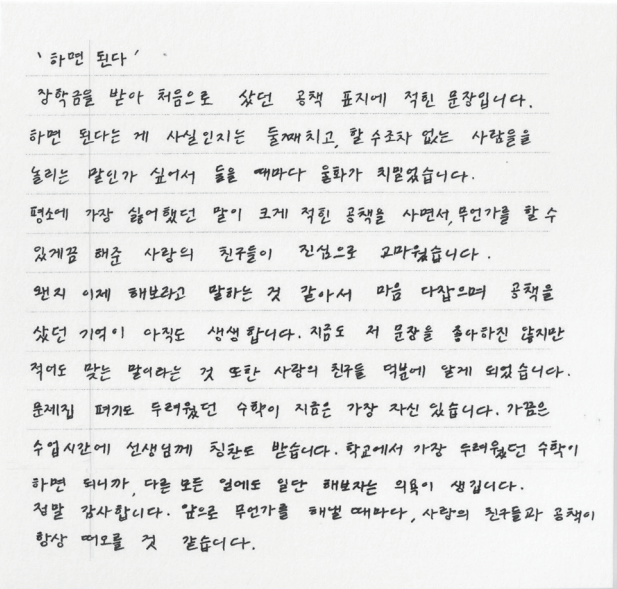 '하면 된다'
장학금을 받아 처음으로 샀던 공책 표지에 적힌 문장입니다.
하면 된다는 게 사실인지는 둘째치고, 할 수조차 없는 사람들을
놀리는 말인가 싶어서 들을 때마다 울화가 치밀었습니다.
평소에 가장 싫어했던 말이 크게 적힌 공책을 사면서, 무언가를 할 수
있게끔 해준 사랑의 친구들이 진심으로 고마웠습니다.
왠지 이제 해보라고 말하는 것 같아서 마음 다잡으며 공책을
샀던 기억이 아직도 생생합니다. 지금도 저 문장을 좋아하진 않지만
적어도 맞는 말이라는 것 또한 사랑의 친구들 덕분에 알게 되었습니다.
문제집 펴기도 두려웠던 수학이 지금은 가장 자신 있습니다. 가끔은
수업시간에 선생님께 칭찬도 받습니다. 학교에서 가장 두려웠던 수학이
하면 되니까, 다른 모든 일에도 일단 해보자는 의욕이 생깁니다.
정말 감사합니다. 앞으로 무언가를 해낼 때마다, 사랑의 친구들과 공책이
항상 떠오를 것 같습니다.